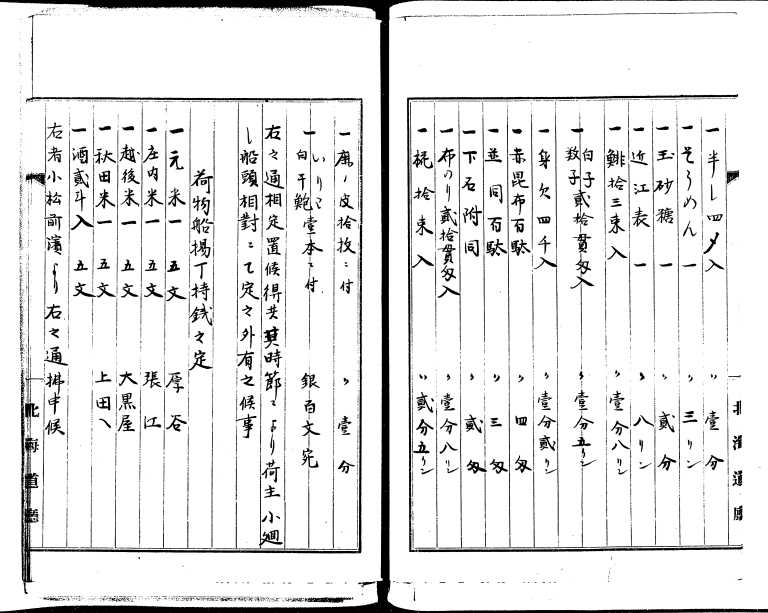 一半し四〆入 〃壹分
一そうめん一 〃三リン
一玉砂糖一 〃貳分
一近江表一 〃八リン
一鯡拾三束入 〃壹分八リン
一白子数子貳拾貫匁入 〃壹分五リン
一身欠四千入 〃壹分貳リン
一赤昆布百駄 〃四匁
一並同百駄 〃三匁
一下石附同 〃貳匁
一布のり貳拾貫匁入 〃壹分八リン
一椛拾束入 〃貳分五リン
北海道廳
一鹿ノ皮拾枚ニ付 〃壹分
一いりこ白干鮑壹本ニ付 銀百文宛
右之通相定置候得共其時節ニより荷主小廻
し船頭相對ニて定之外有之候事
荷物船揚丁持銭之定
一元米一 五文 厚谷
一庄内米一 五文 張江
一越後米一 五文 大黒屋
一秋田米一 五文 上田〵
一酒貳斗入 五文
右者小松前濱より右之通拂申候
北海道廳